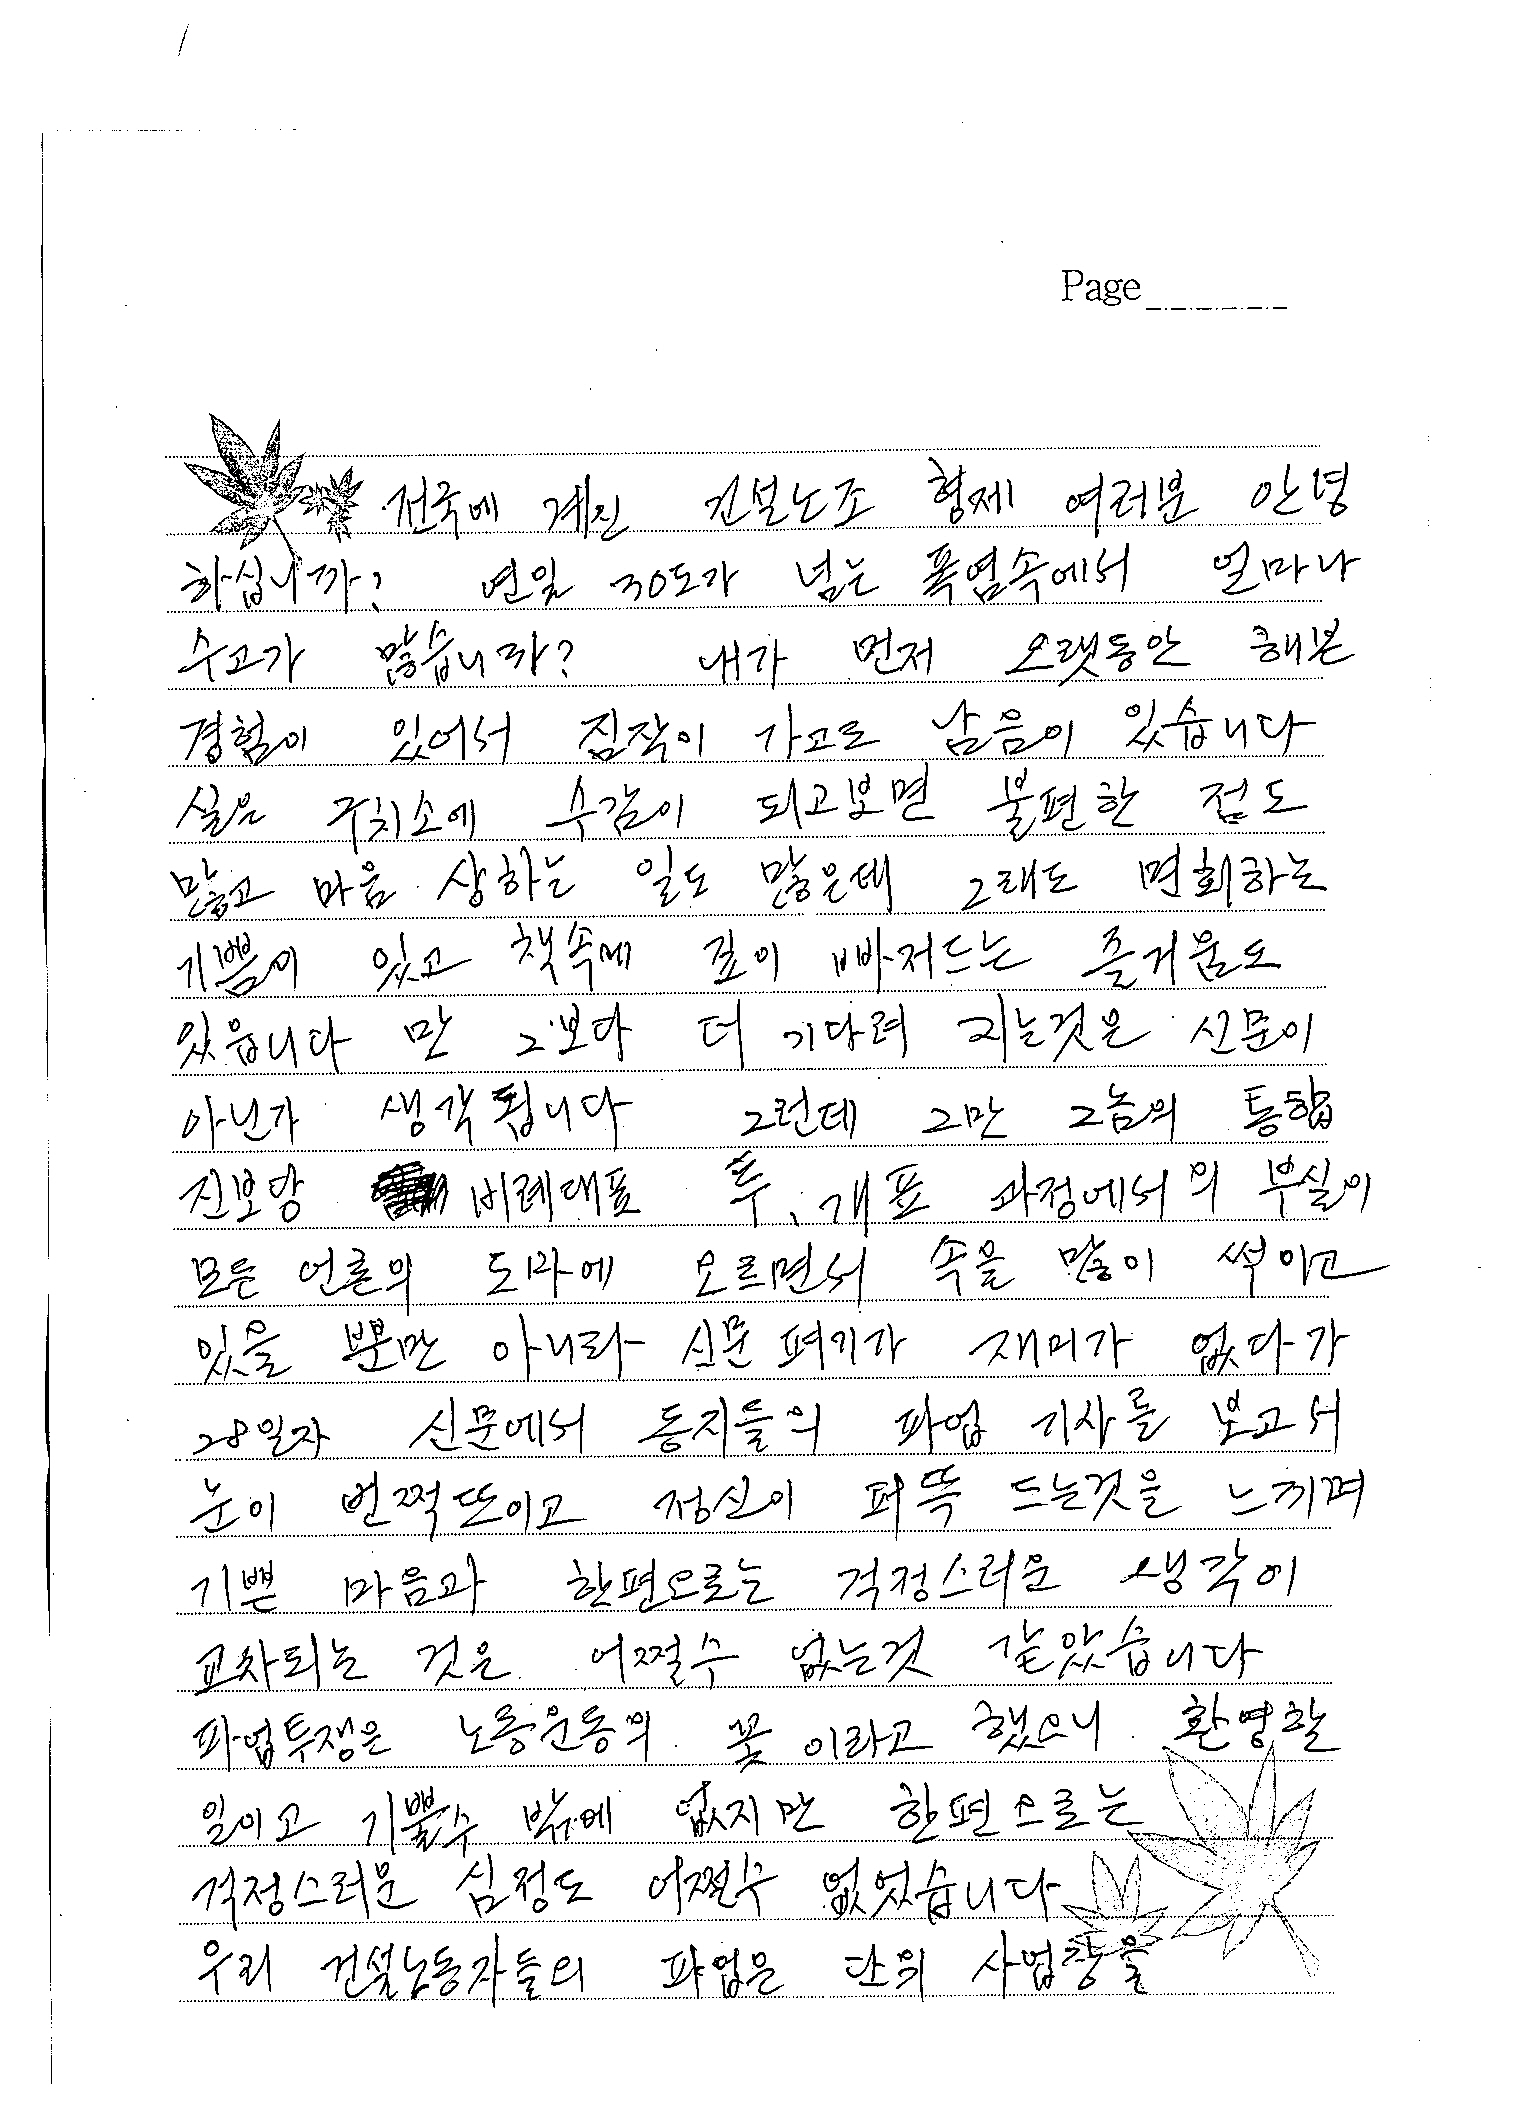 1
Page
전국에 계신 건설노조 형제 여러분 안녕
하십니까? 연일 30도가 넘는 폭염속에서 얼마나
수고가 많습니까? 내가 먼저 오랫동안 해본
경험이 있어서 짐작이 가고도 남음이 있습니다
실은 구치소에 수감이 되고보면 불편한 점도
많고 마음 상하는 일도 많은데 그래도 면회하는
기쁨이 있고 책속에 깊이 빠져드는 즐거움도
있읍니다 만 그보다 더 기다려 지는것은 신문이
아닌가 생각됩니다 그런데 그만 그놈의 통합
진보당 비례대표 투, 개표 과정에서의 부실이
모든 언론의 도마에 오르면서 속을 많이 썩이고
있을 뿐만 아니라 신문펴기가 재미가 없다가
28일자 신문에서 동지들의 파업 기사를 보고서
눈이 번쩍뜨이고 정신이 퍼뜩 드는것을 느끼며
기쁜 마음과 한편으로는 걱정스러운 생각이
교차되는 것은 어쩔수 없는것 같았습니다
파업투쟁은 노동운동의 꽃 이라고 했으니 환영할
일이고 기쁠수 밖에 없지만 한편으로는
걱정스러운 심정도 어쩔수 없었습니다
우리 건설노동자들의 파업은 단위 사업장을